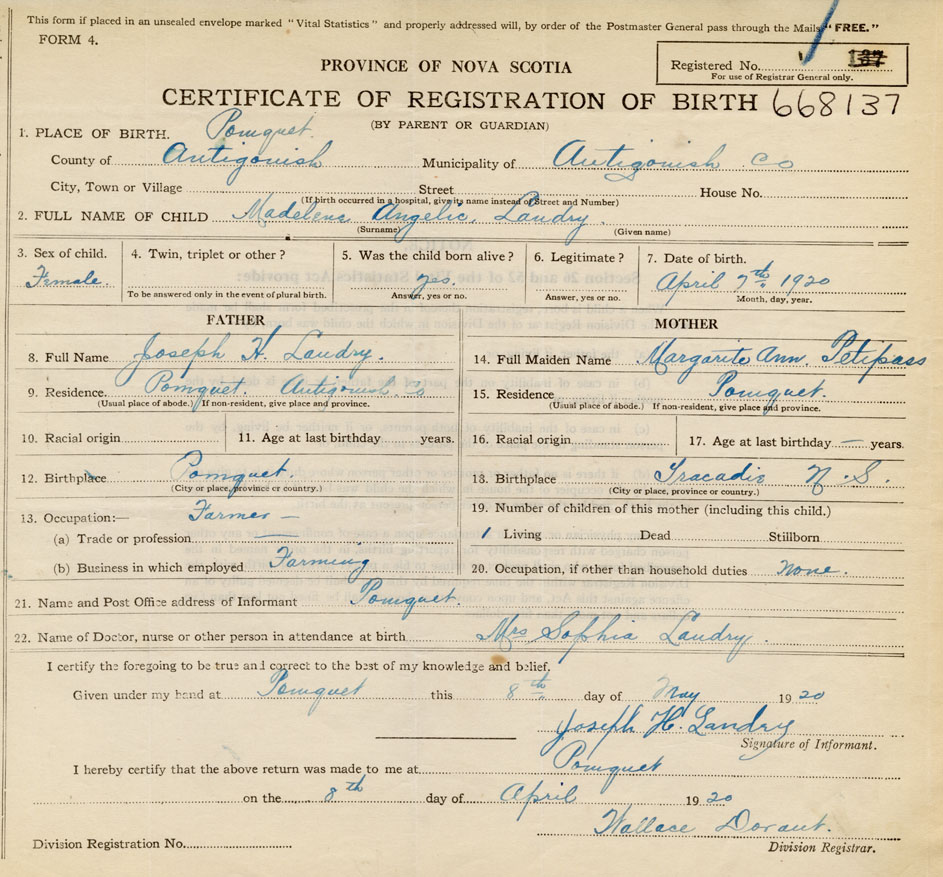 This form if placed in an unsealed envelope marked "Vital Statistics" and properly addressed will, by order of the Postmaster General pass through the Mails "FREE."
FORM 4.
Registered No. 137
For use of Registrar General only.
PROVINCE OF NOVA SCOTIA
CERTIFICATE OF REGISTRATION OF BIRTH 668137
(BY PARENT OR GUARDIAN)
1. PLACE OF BIRTH. Pomquet.
County of Antigonish Municipality of Antigonish Co
City, Town or Village Street House No.
(If birth occurred in a hospital, give its name instead of Street and Number)
2. FULL NAME OF CHILD Madelena Angelic Landry
(Surname) (Given name)
3. Sex of child. Female. 4. Twin, triplet or other? 5. Was the child born alive? yes. 6. Legitimate? 7. Date of birth. April 7th 1920
To be answered only in the event of plural birth. Answer, yes or no. Answer, yes or no. Month, day, year.
FATHER MOTHER
8. Full Name Joseph H. Landry. 14. Full Maiden Name Margarite Ann. Petipass
9. Residence. Pomquet. Antigonish. Co 15. Residence Pomquet.
(Usual place of abode.) If non-resident, give place and province. (Usual place of abode.) If non-resident, give place and province.
10. Racial origin 11. Age at last birthday years. 16. Racial origin 17. Age at last birthday — years.
12. Birthplace Pomquet. 18. Birthplace Tracadie N.S.
(City or place, province or country.) (City or place, province or country.)
13. Occupation:— Farmer — 19. Number of children of this mother (including this child.)
(a) Trade or profession 1 Living Dead Stillborn
(b) Business in which employed Farming 20. Occupation, if other than household duties None.
21. Name and Post Office address of Informant Pomquet.
22. Name of Doctor, nurse or other person in attendance at birth Mrs Sophia Landry.
I certify the foregoing to be true and correct to the best of my knowledge and belief.
Given under my hand at Pomquet this 8th day of May 1920
Joseph H. Landry
Signature of Informant.
I hereby certify that the above return was made to me at Pomquet
on the 8th day of April 1920
Wallace Dorant.
Division Registration No. Division Registrar.